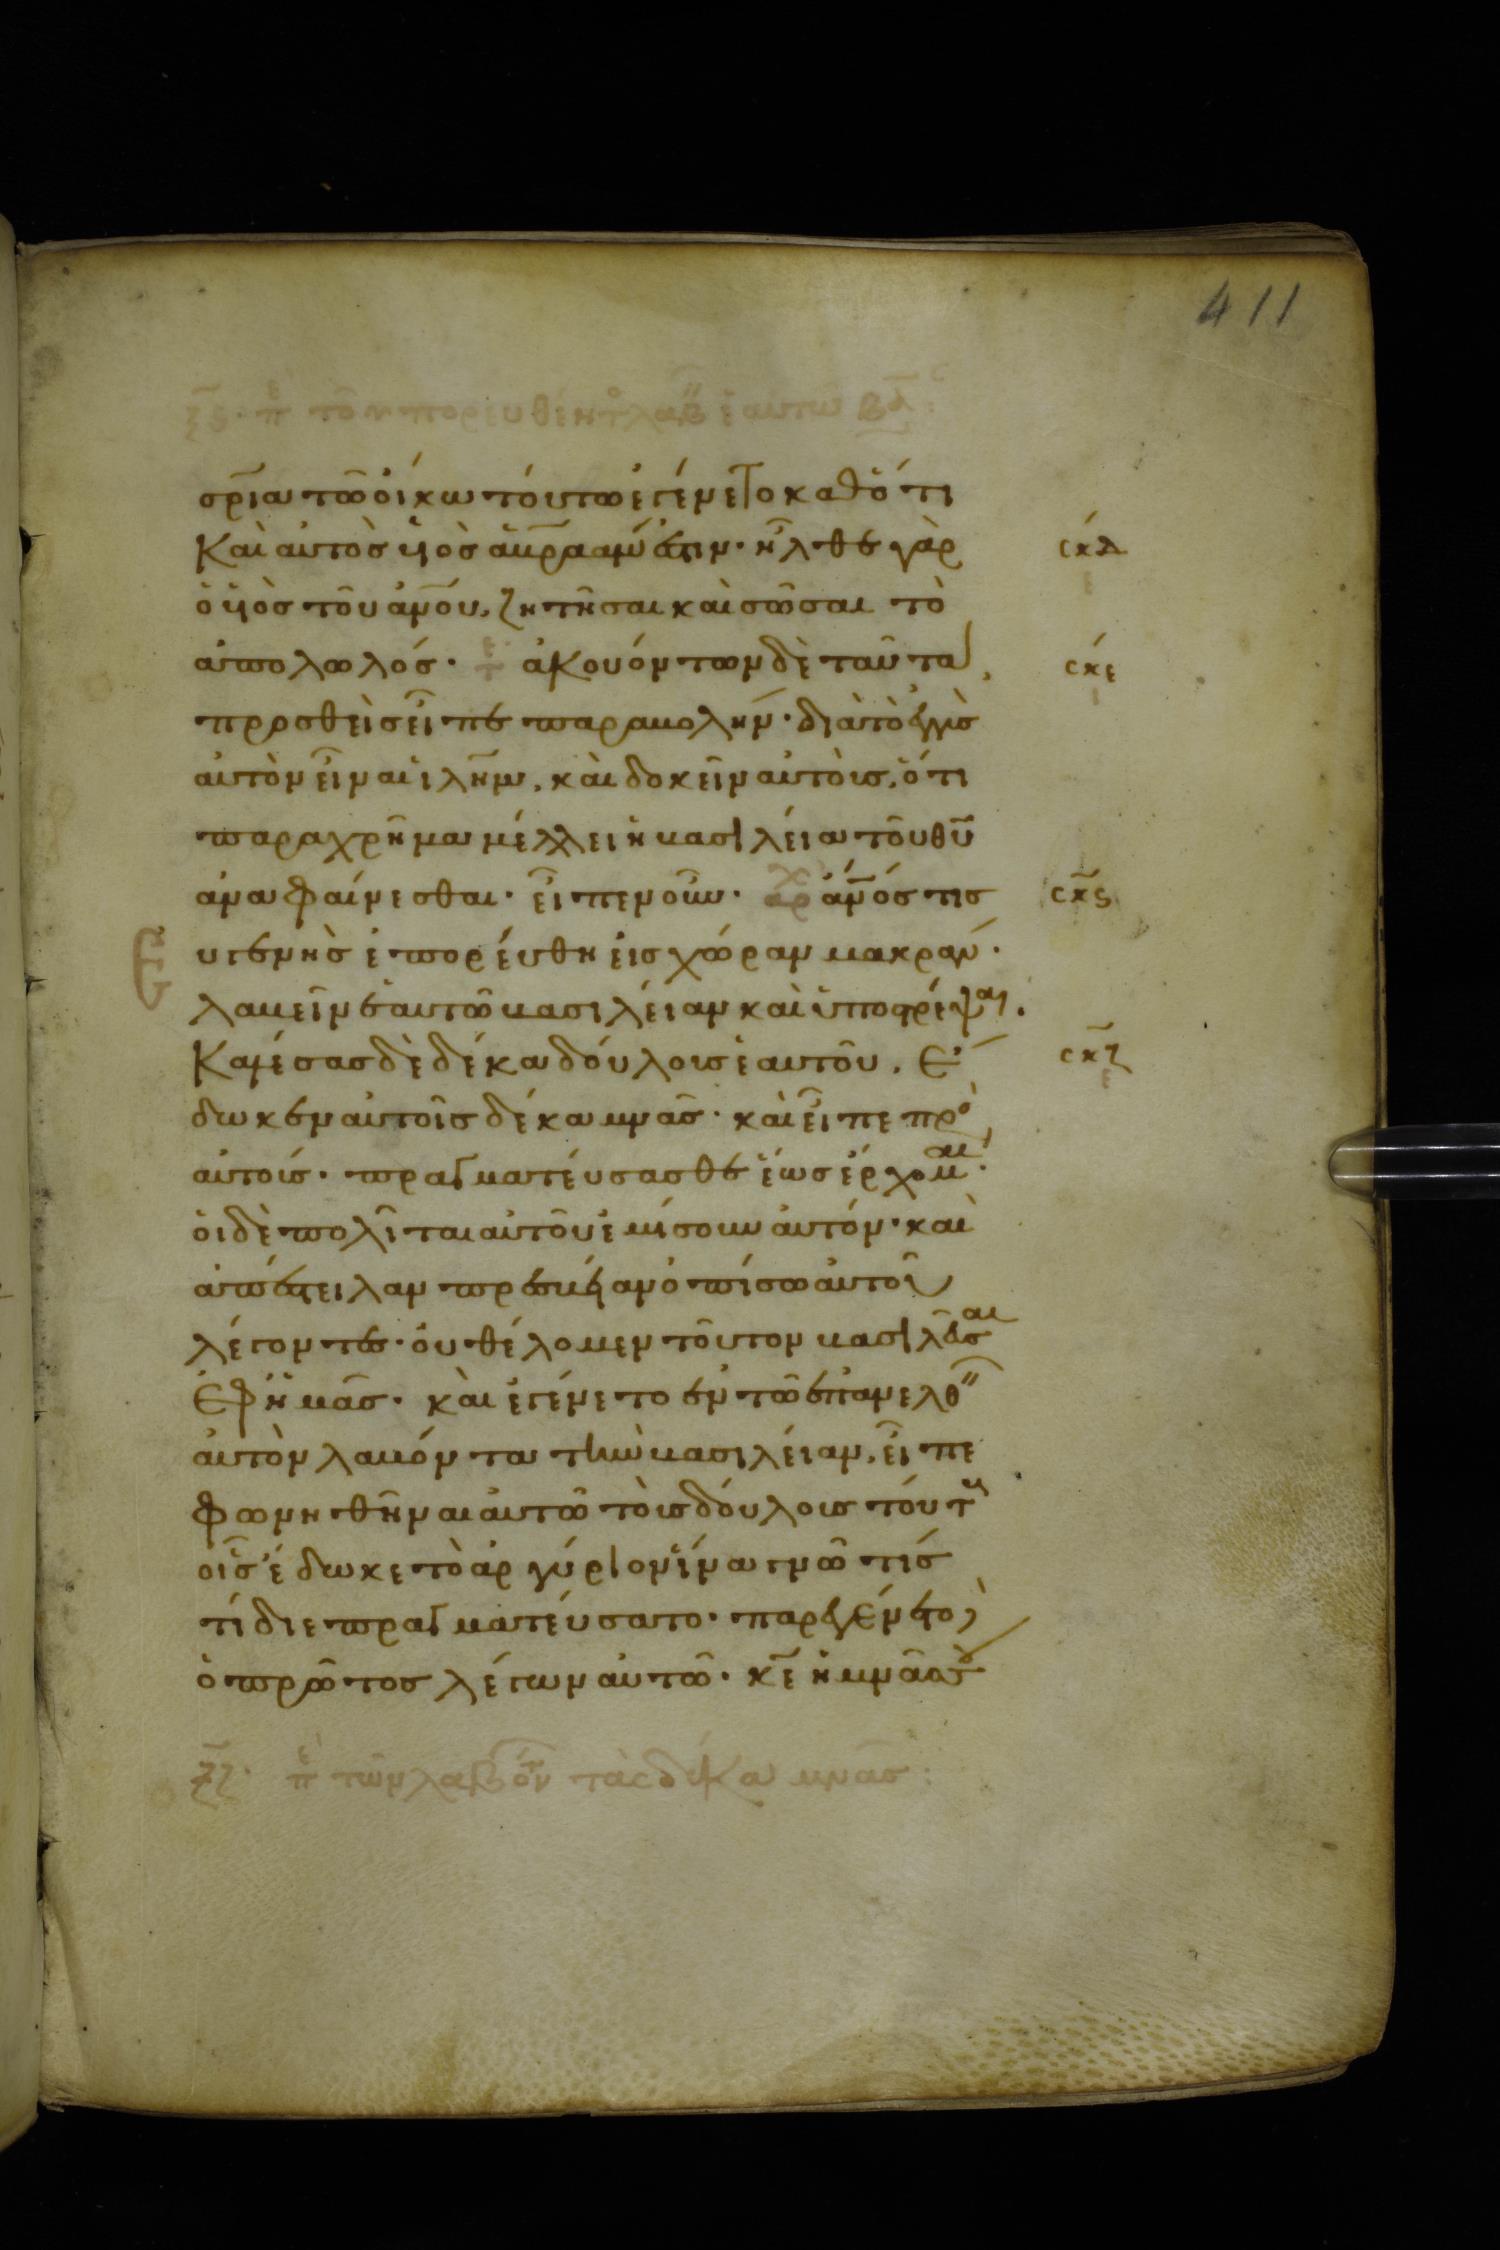 411
ξς· πε τοῦ πορευθέντο λαβ ἑαυτῶ βα:
σρία τῶ οἴκω τούτω ἐγένετο καθότι
καὶ αὐτὸσ ϋἱὸσ ἀβρααμ ἐστιν· ἦλθε γὰρ
σκδ
ὁ ϋἱὸσ τοῦ ἀνου, ζητῆσαι καὶ σῶσαι τὸ
ἀπολωλόσ· ἀκουόντων δὲ ταῦτα
σκε
προσθεὶσ εἶπε παραβολήν· διὰ τὸ ἐγγὺσ
αὐτὸν εἶναι ἰλημ, καὶ δοκεῖν αὐτοὺσ, ὅτι
παραχρῆμα μέλλει ἡ βασιλεία τοῦ θυ
ἀναφαίνεσθαι· εἶπεν οὖν· αρχ ἀνόσ τισ
σκς
εὐγενὴσ ἐπορεύθη εἰσ χώραν μακραν·
λαβεῖν ἑαυτῶ βασιλείαν καὶ ὑποστρέψαι.
καλέσασ δὲ δέκα δούλουσ ἑαυτοῦ, ἔ
σκζ
δωκεν αὐτοῖσ δέκα μνᾶσ· καὶ εἶπε προ
αὐτούσ· πραγματεύσασθε ἕωσ ἔρχομαι·
οἱ δὲ πολῖται αὐτοῦ ἐμίσουν αὐτόν· καὶ
ἀπέστειλαν πρεσβείαν ὀπίσω αὐτοῦ
λέγοντεσ· οὐ θέλομεν τοῦτον βασιλεῦσαι
ἐφ ἡμᾶσ· καὶ ἐγένετο ἐν τῶ ἐπανελθ
αὐτὸν λαβόντα τὴν βασιλείαν, εἶπε
φωνηθῆναι αὐτῶ τοὺσ δούλουσ τούτ
οἷσ ἔδωκε τὸ ἀργύριον ἵνα γνῶ τίσ
τί διεπραγματεύσατο· παρεγένετο
ὁ πρῶτοσ λέγων αὐτῶ· κε ἡ μνᾶ σου
ξζ· πε τῶν λαβόντ τὰς δέκα μνᾶσ: